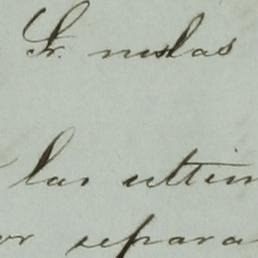 Sr. nislas
las ultim
or separa